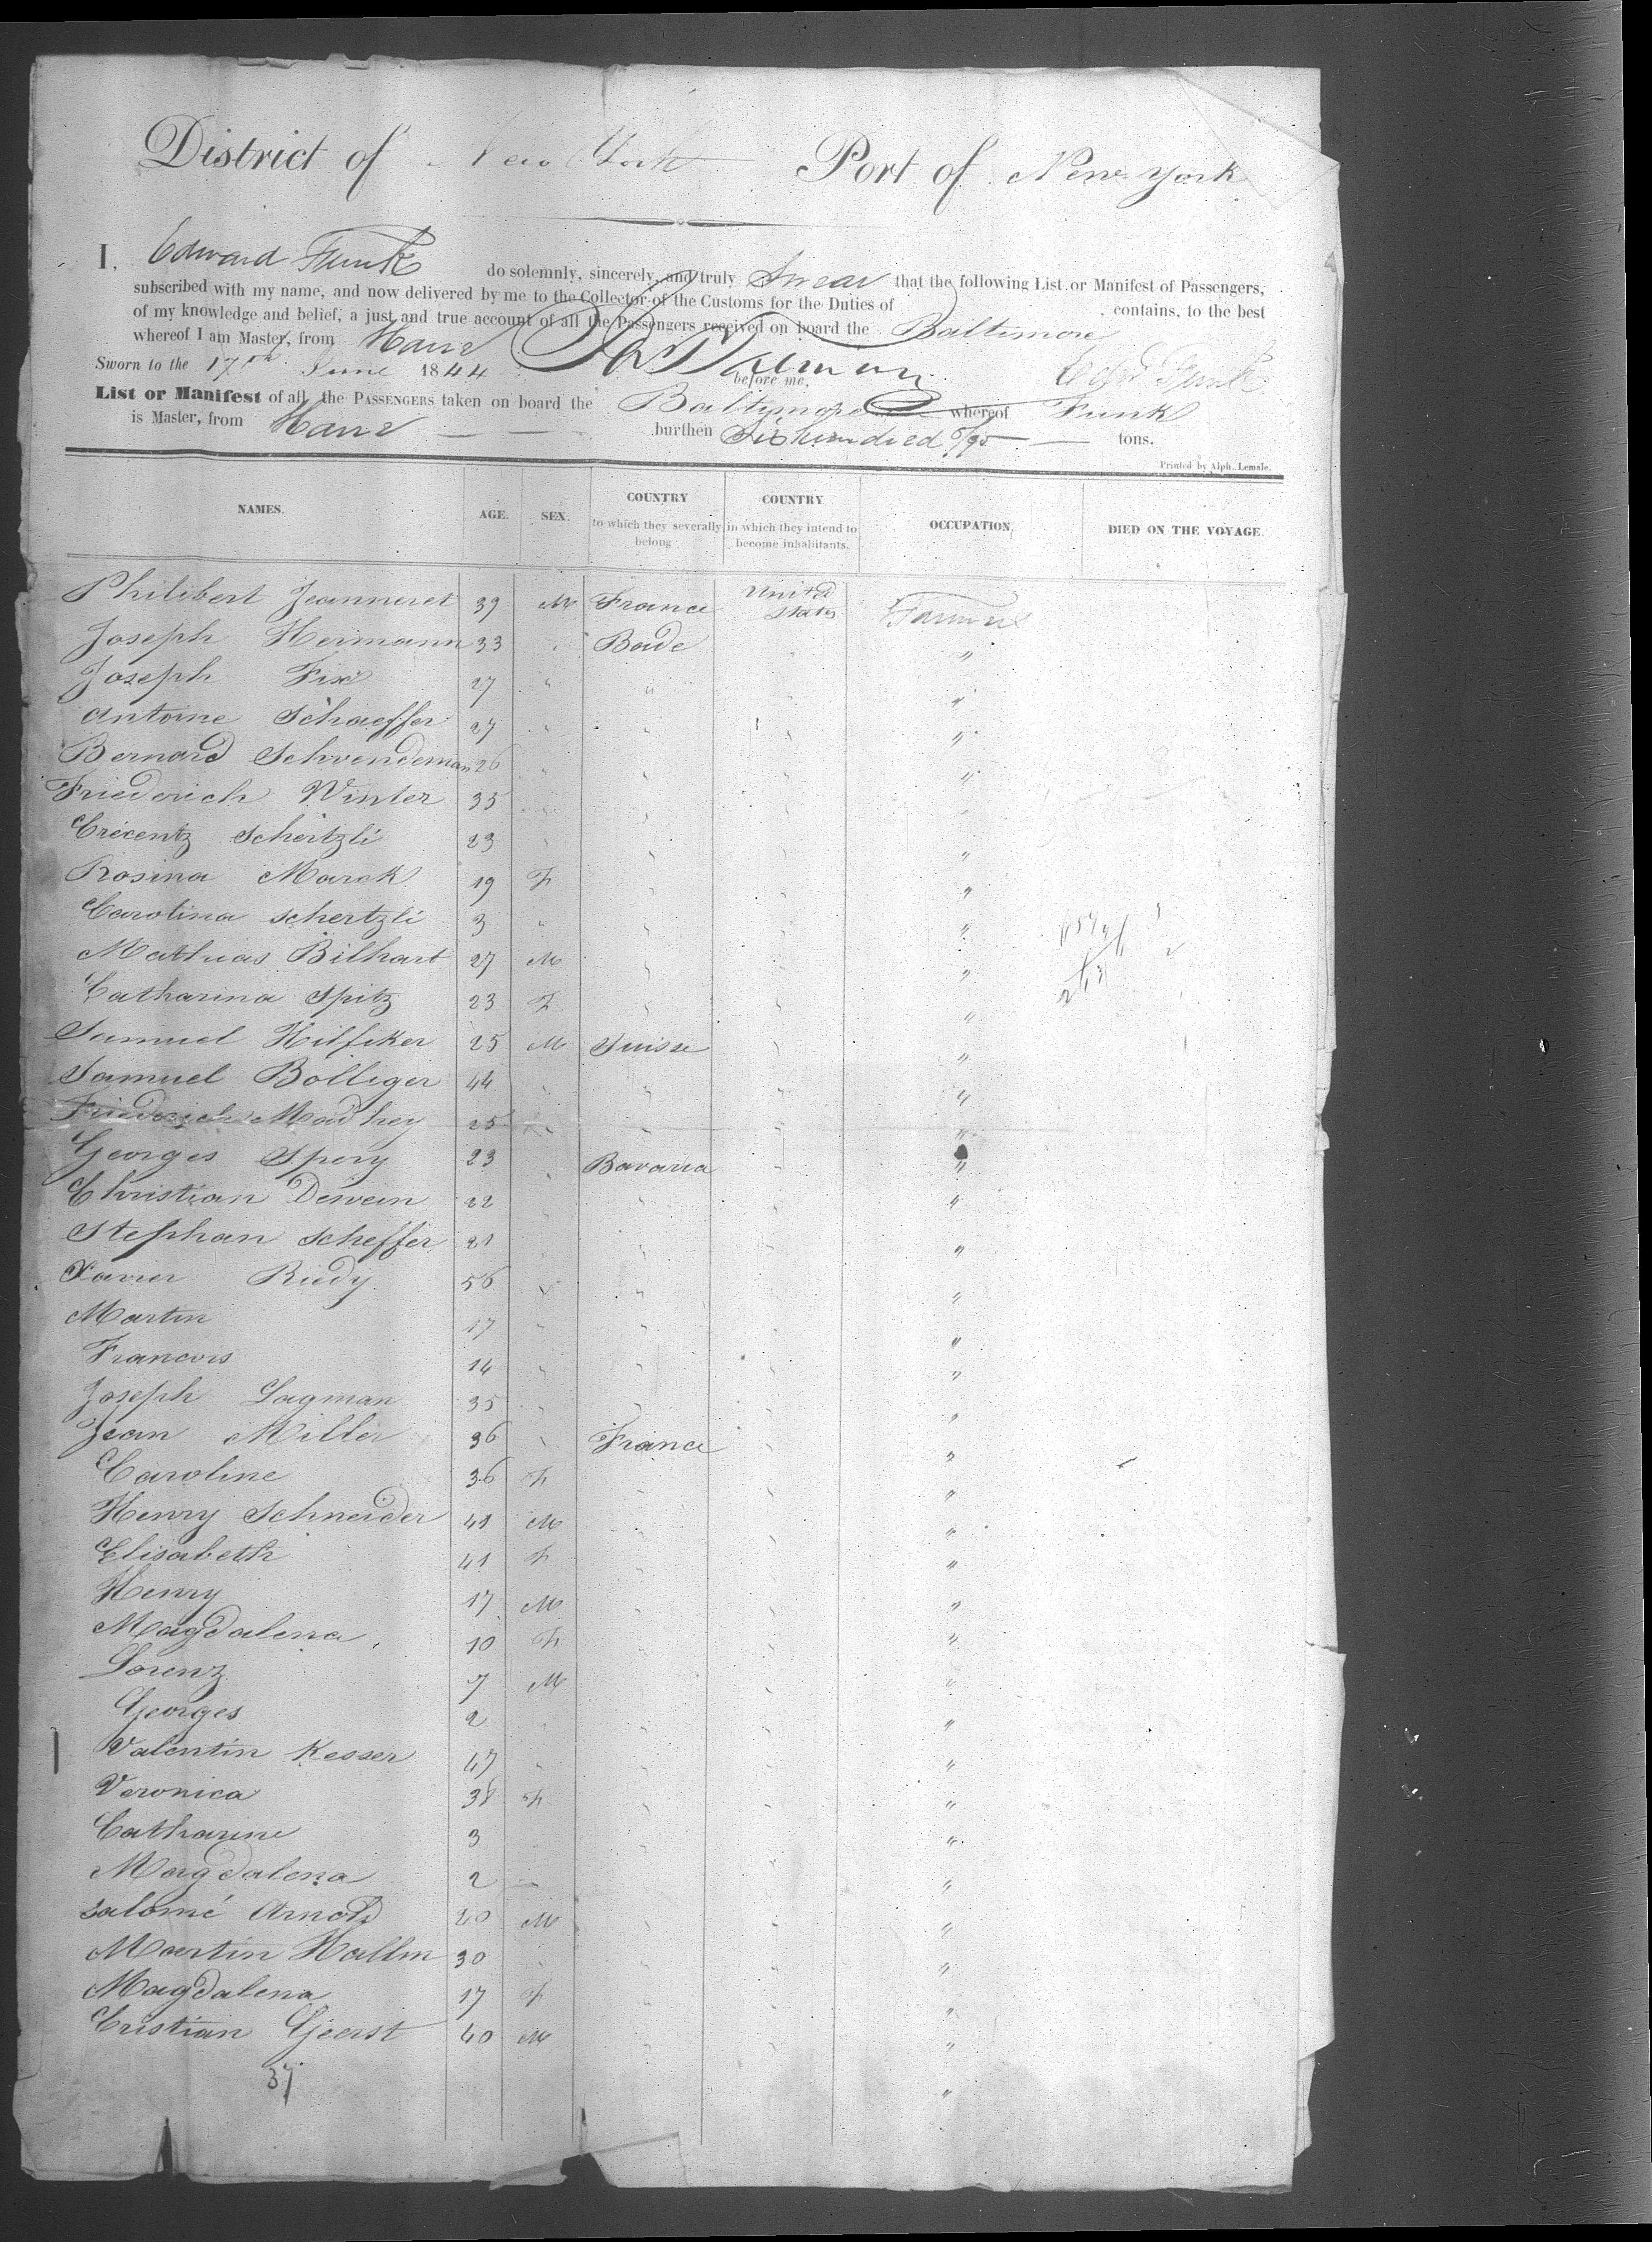 District of New York Port of New York
I, Edward Funk do solemnly, sincerely, and truly Swear that the following List or Manifest of Passengers,
subscribed with my name, and now delivered by me to the Collector of the Customs for the Duties of , contains, to the best
of my knowledge and belief, a just and true account of all the Passengers received on board the Baltimore
whereof I am Master, from Havre
Sworn to the 17th June 1844 before me, Edwd Funk
List or Manifest of all the PASSENGERS taken on board the Baltimore whereof Funk
is Master, from Havre burthen Six hundred /95 tons.
Printed by Alph. Lemale.
NAMES. AGE. SEX. COUNTRY to which they severally belong COUNTRY in which they intend to become inhabitants. OCCUPATION, DIED ON THE VOYAGE.
Philibert Jeanneret 39 M France United States Farmer
Joseph Hermann 33 " Bade "
Joseph Fix 27 " " "
Antoine Schaeffer 27 " " "
Bernard Schvendeman 26 " " "
Friederich Winter 35 " "
Crecentz Schertzli 23 " " "
Rosina Marck 19 F " "
Carolina Schertzli 3 " "
Mathias Bilhart 27 M " "
Catharina Spitz 23 F " "
Samuel Hilfiker 25 M Suisse "
Samuel Bolliger 44 " " "
Friederich Madhey 25 " " "
Georges Spery 23 " Bavaria "
Christian Dewein 22 " " "
Stephan Scheffer 21 " " "
Xavier Riedy 56 " " "
Martin 17 " " "
Francois 14 " " "
Joseph Lagman 35 " " "
Jean Miller 36 " France "
Caroline 36 F " "
Henry Schneider 41 M " "
Elisabeth 41 F " "
Henry 17 M " "
Magdalena 10 F " "
Lorenz 7 M " "
Georges 2 " " "
Valentin Kesser 47 " " "
Veronica 38 F " "
Catharine 3 "
Magdalena 2 "
Salomé Arnold 20 M " "
Martin Hallm 30 " " "
Magdalena 17 F " "
Cristian Geerst 40 M " "
37